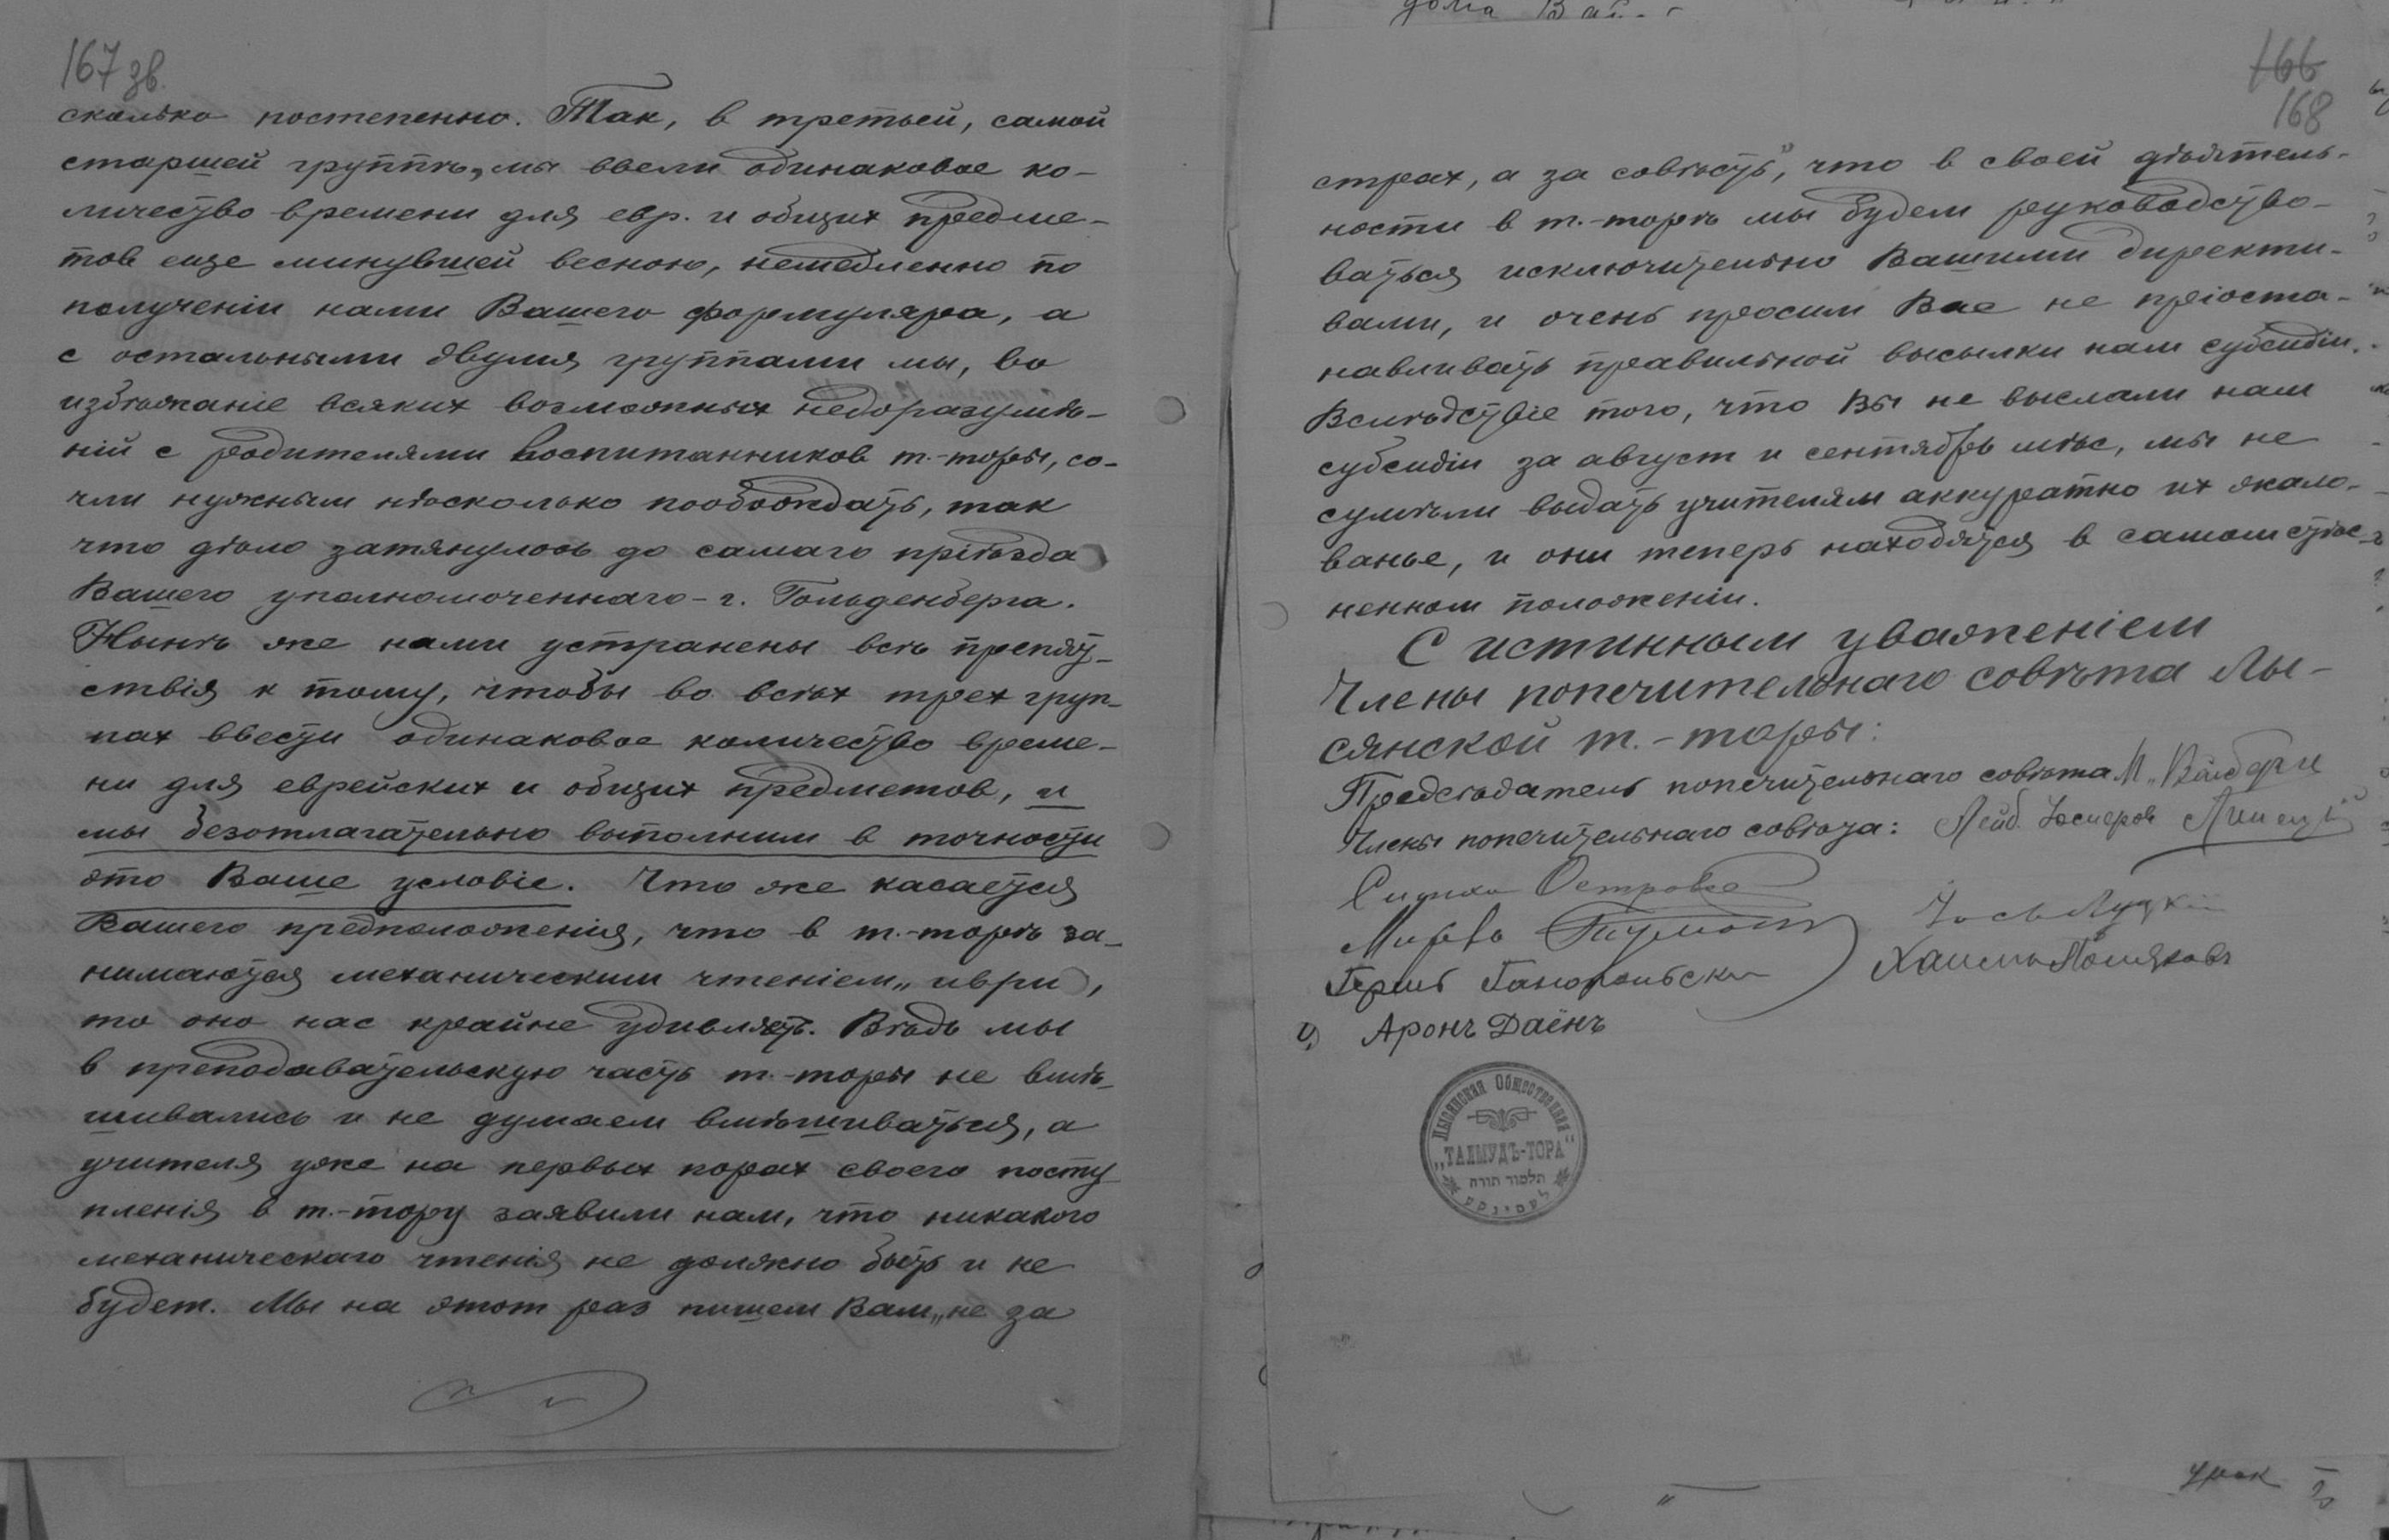 167 зв.
сколько постепенно. Так, в третьей, самой
старшей группѣ, мы ввели одинаковое ко-
личество времени для евр. и общих предме-
тов еще минувшей весною, немедленно по
полученіи нами Вашего формуляра, а
с остальными двумя группами мы, во
избѣжаніе всяких возможных недоразумѣ-
ній с родителями воспитанников т.-торы, со-
чли нужным нѣсколько пообождать, так
что дѣло затянулось до самаго пріѣзда
Вашего уполномоченнаго - г. Гольденберга.
Нынѣ же нами устранены всѣ препят-
ствія к тому, чтобы во всѣх трех груп-
пах ввести одинаковое количество време-
ни для еврейских и общих предметов, и
мы безотлагательно выполним в точности
это Ваше условіе. Что же касается
Вашего предположенія, что в т.-торѣ за-
нимаются механическим чтеніем „иври",
то оно нас крайне удивляет. Вѣдь мы
в преподавательскую часть т.-торы не вмѣ-
шивались и не думаем вмѣшиваться, а
учителя уже на первых порах своего посту-
пленія в т.-тору заявили нам, что никакого
механическаго чтенія не должно быть и не
будет. Мы на этот раз пишем Вам „не за
166
168
страх, а за совѣсть", что в своей дѣятель-
ности в т.-торѣ мы будем руководство-
ваться исключительно Вашими директи-
вами, и очень просим Вас не пріоста-
навливать правильной высылки нам субсидіи.
Вслѣдствіе того, что Вы не выслали нам
субсидіи за август и сентябрь мѣс, мы не
сумѣли выдать учителям аккуратно их жало-
ванье, и они теперь находятся в самом стѣс-
ненном положеніи.
С истинным уваженіем
Члены попечительнаго совѣта Лы-
сянской т.-торы:
Предсѣдатель попечительнаго совѣта М.
Члены попечительнаго совѣта: Лейб
Островс
Миров
Лузкій
Герш
Хаимъ Поляковъ
Аронъ Даенъ
Лысянская Общественная
„ТАЛМУДЪ-ТОРА"
תלמוד תורה
לסיינקא
урок